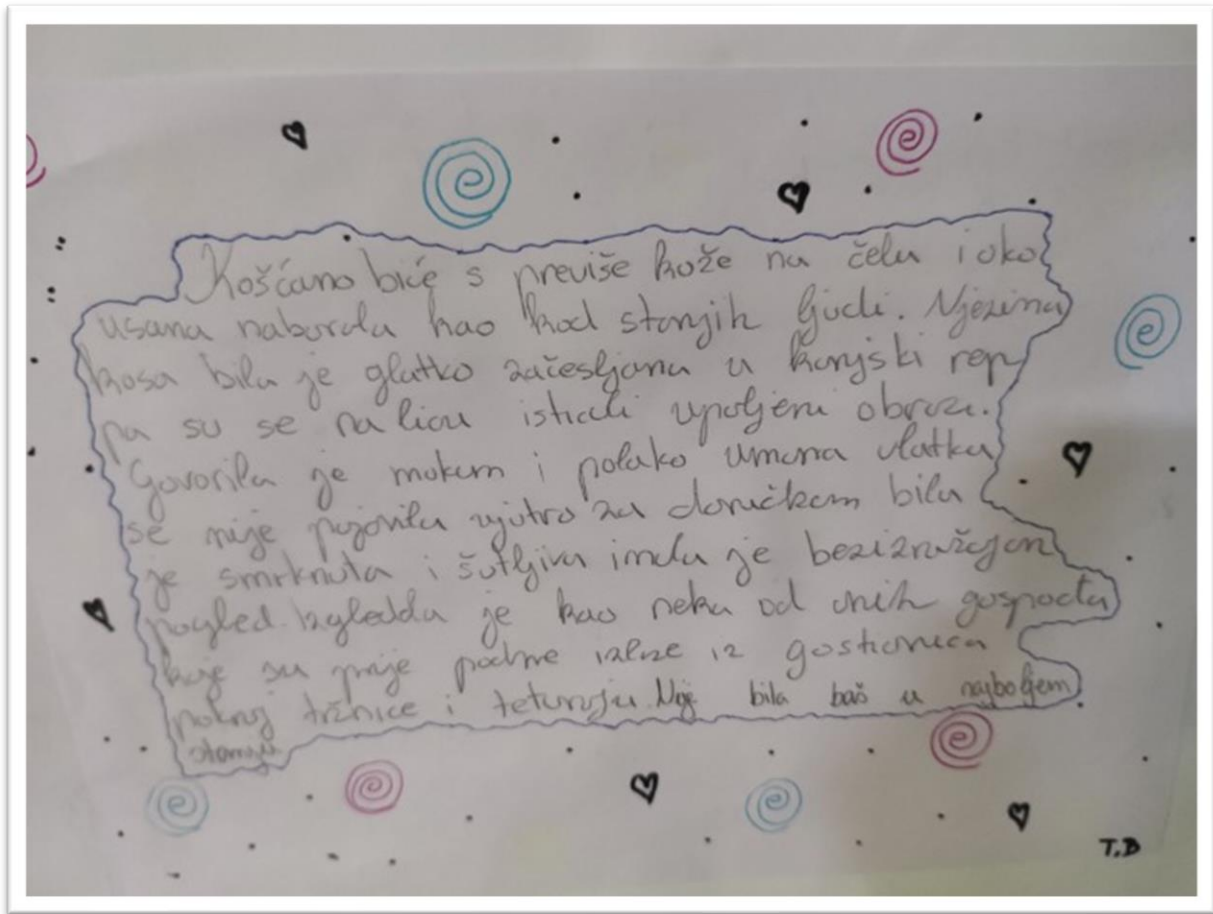 Košćano biće s previše kože na čelu i oko
usana naborala kao kod starijih ljudi. Njezina
kosa bila je glatko začesljana u konjski rep
pa su se na licu isticali upaljeni obrazi.
Govorila je mukom i polako umorna vlatka
se nije pojavila ujutro za doručkom bila
je smrknuta i šutljiva imala je bezizražajan
pogled. Izgledala je kao neka od onih gospođa
koje su prije podne izlaze iz gostionica
pokraj tržnice i teturaju. Nije bila baš u najboljem
stanju.
T.B